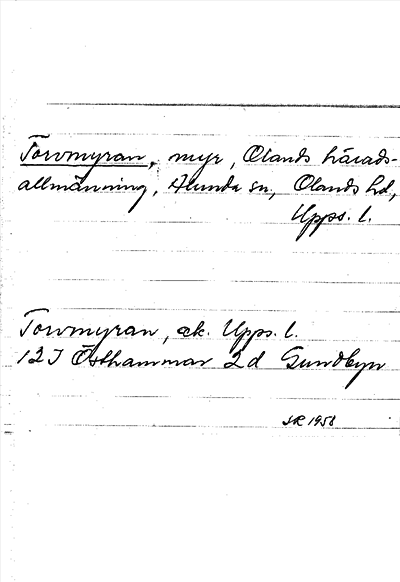 Torvmyran, myr, Olands härads-
allmänning, Alunda sn, Olands hd,
Upps. l.
Torvmyran, ek. Upps. l.
12I Östhammar 2d Sundbyn
SR 1958